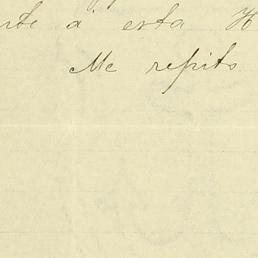 rte á esta H
Me repito